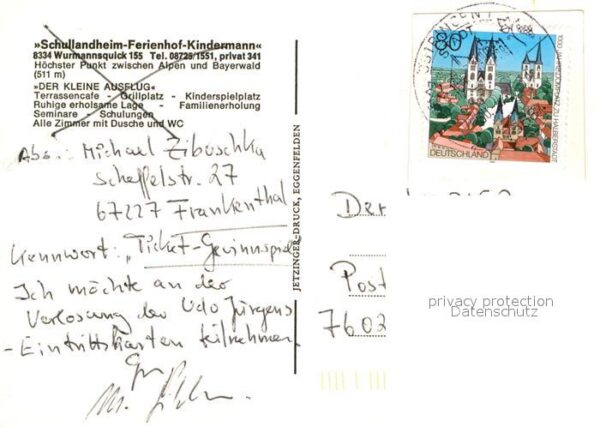 »Schullandheim-Ferienhof-Kindermann«
8334 Wurmannsquick 155 Tel. 08725/1551, privat 341
Höchster Punkt zwischen Alpen und Bayerwald
(511 m)
»DER KLEINE AUSFLUG«
Terrassencafe - Grillplatz - Kinderspielplatz
Ruhige erholsame Lage - Familienerholung
Seminare - Schulungen
Alle Zimmer mit Dusche und WC
Abs.: Michael Zibuschka
Scheffelstr. 27
67227 Frankenthal
Kennwort: "Ticket-Gewinnspiel
Ich möchte an der
Verlosung der Udo Jürgens
-Eintrittskarten teilnehmen.
JETZINGER-DRUCK, EGGENFELDEN
80
DEUTSCHLAND
1000 JAHRE DOMPLATZ ZU HALBERSTADT
BRIEFZENTRUM
Der
Post
7602
privacy protection
Datenschutz